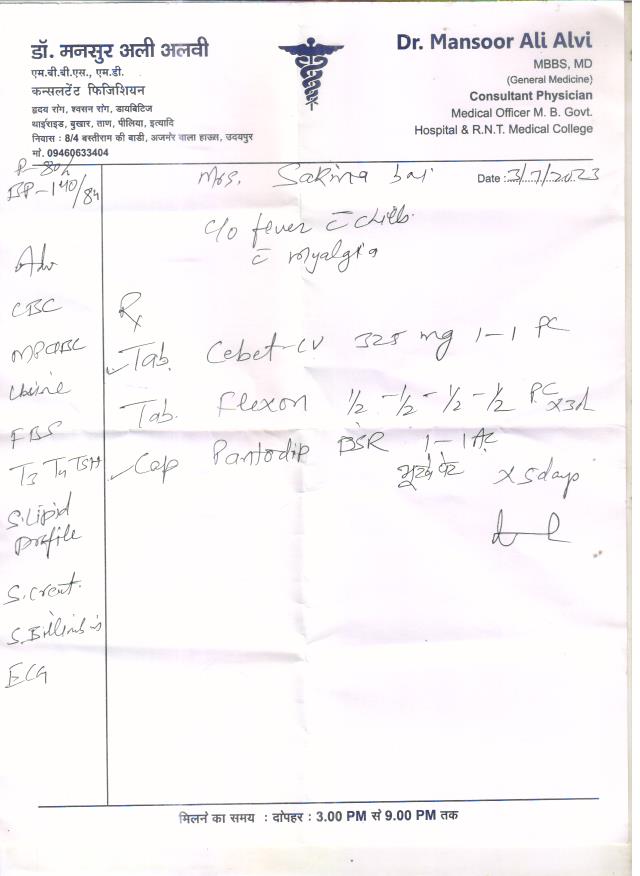 डॉ. मनसुर अली अलवी
एम.बी.बी.एस., एम.डी.
कन्सलटेंट फिजिशियन
हृदय रोग, श्वसन रोग, डायबिटिज
थाईराइड, बुखार, ताण, पीलिया, इत्यादि
निवास : 8/4 बस्तीराम की बाडी, अजमेर वाला हाऊस, उदयपुर
मो. 09460633404
Dr. Mansoor Ali Alvi
MBBS, MD
(General Medicine)
Consultant Physician
Medical Officer M. B. Govt.
Hospital & R.N.T. Medical College
P-80/
BP-140/84
Mrs. Sakina bai
Date : 3/7/2023
c/o fever c̄ chills
c̄ myalgia
Adv
CBC
Urine
FBS
T3 T4 TSH
S. Lipid
Profile
S. Creat.
S. Bilirubin
ECG
Rx
Tab. Cebet-CV 325 mg 1-1 PC
Tab. Flexon 1/2 - 1/2 - 1/2 - 1/2 PC x3d
Cap Pantodip DSR 1-1 AC
भूखे पेट x 5 days
मिलने का समय : दोपहर : 3.00 PM से 9.00 PM तक